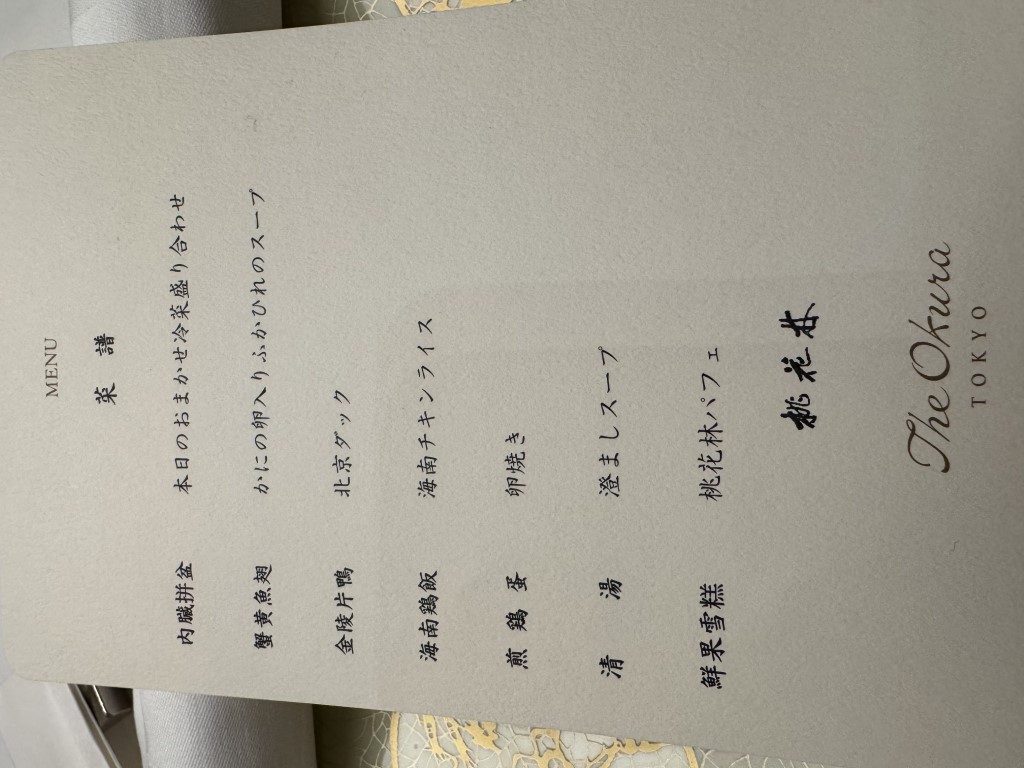 MENU
菜 譜
内臓拼盆 本日のおまかせ冷菜盛り合わせ
蟹黄魚翅 かにの卵入りふかひれのスープ
金陵片鴨 北京ダック
海南鶏飯 海南チキンライス
煎鶏蛋 卵焼き
清湯 澄ましスープ
鮮果雪糕 桃花林パフェ
桃花林
The Okura
TOKYO